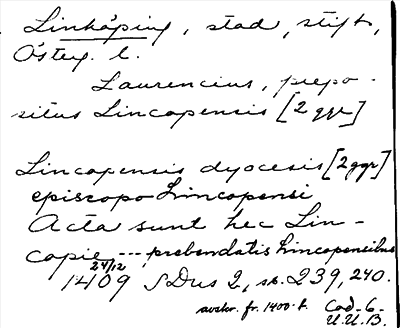 Linköping, stad, stift,
Österg. l.
Laurencius, prepo-
situs Lincopensis [2 ggr]
Lincopensis dyocesis [2 ggr]
episcopo Lincopensi
Acta sunt hec Lin-
copie --- prebendatis Lincopencibus
24/12
1409 SDns 2, s. 239, 240.
avskr. fr. 1400-t. Cod. 6.
U.U.B.